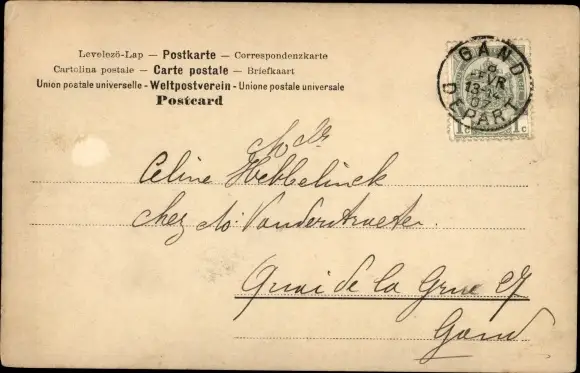 Levelezö-Lap — Postkarte — Correspondenzkarte
Cartolina postale — Carte postale — Briefkaart
Union postale universelle - Weltpostverein - Unione postale universale
Postcard
GAND
8
FEVR
13-14
07
DEPART
1c 1c
Celine Hebbelinck
chez Mr Vanderstraeten.
Quai de la Grue
Gand